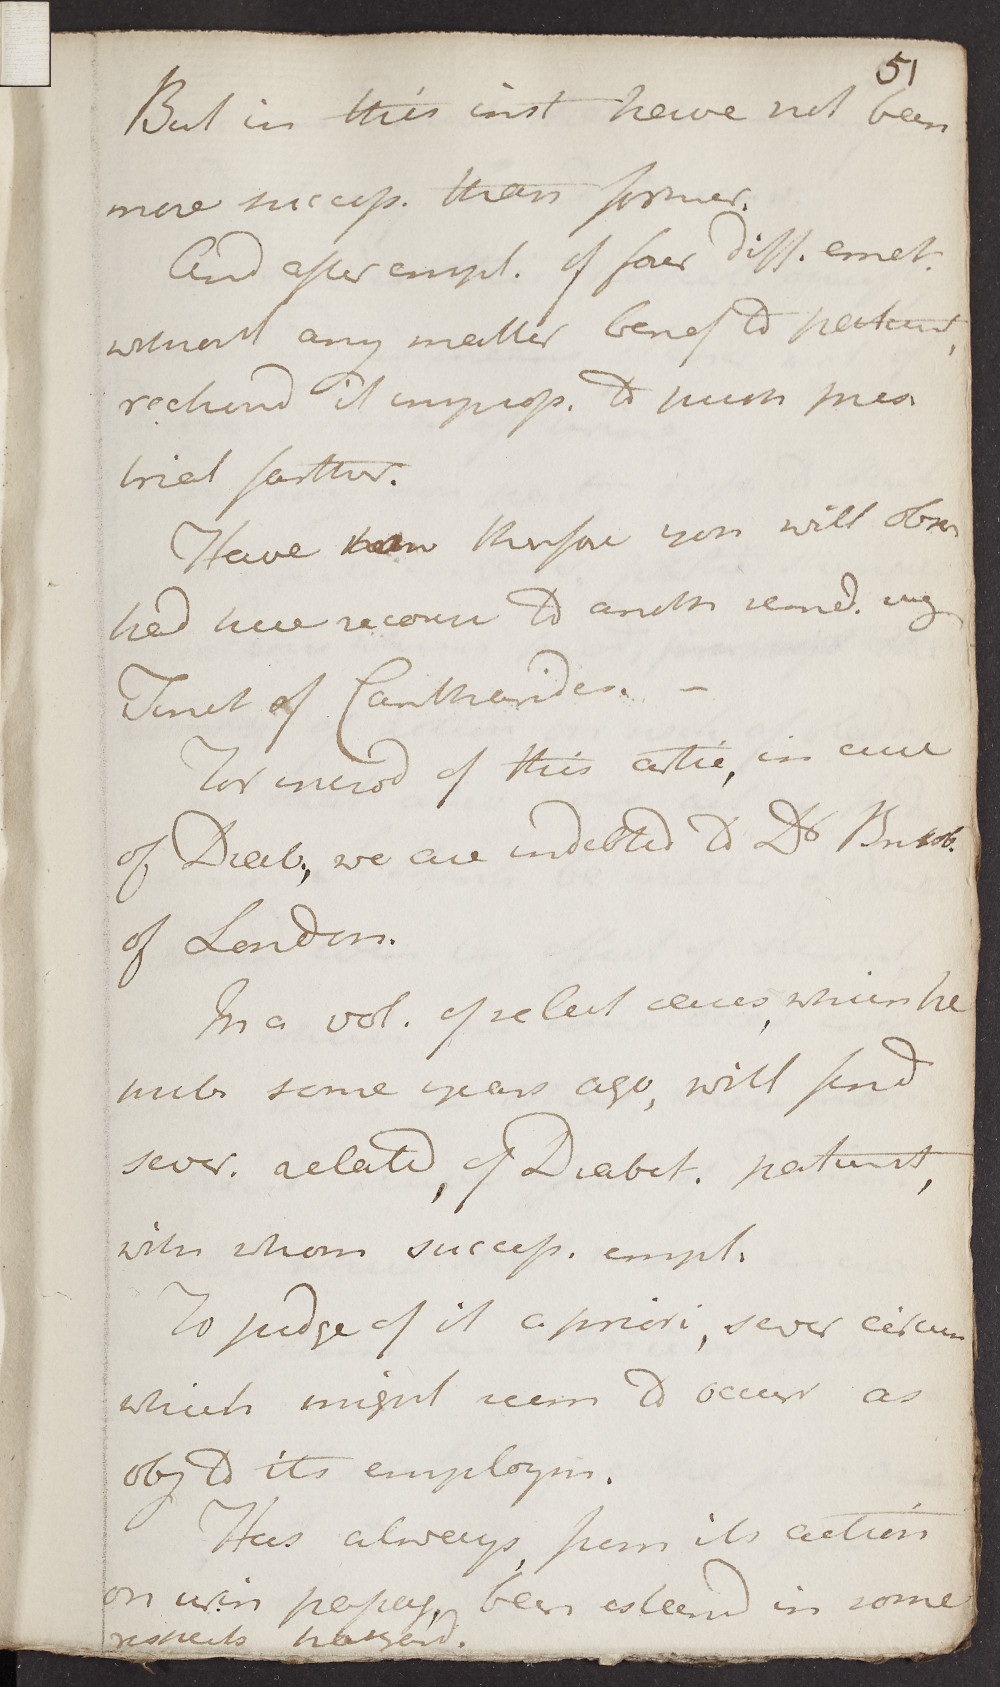 51
But in this inst have not been
more success. than former.
And after empl. of four diff. emet.
without any matter benef to patient,
reckond it improp. to push pres
trial farther.
Have therefore you will obser
had here recourse to anoth remed. viz
Tinct of Cantharides. –
For introd of this artic, in cure
of Diab., we are indebted to Dr Brisb.
of London.
In a vol. of select cases, which he
pub some years ago, will find
sever. related, of Diabet. patient,
with whom success. empl.
To judge of it a priori, sever circum
which might seem to occur as
obj to its employm.
Has always, from its action
on urin passag, been esteemd in some
respects hazard.